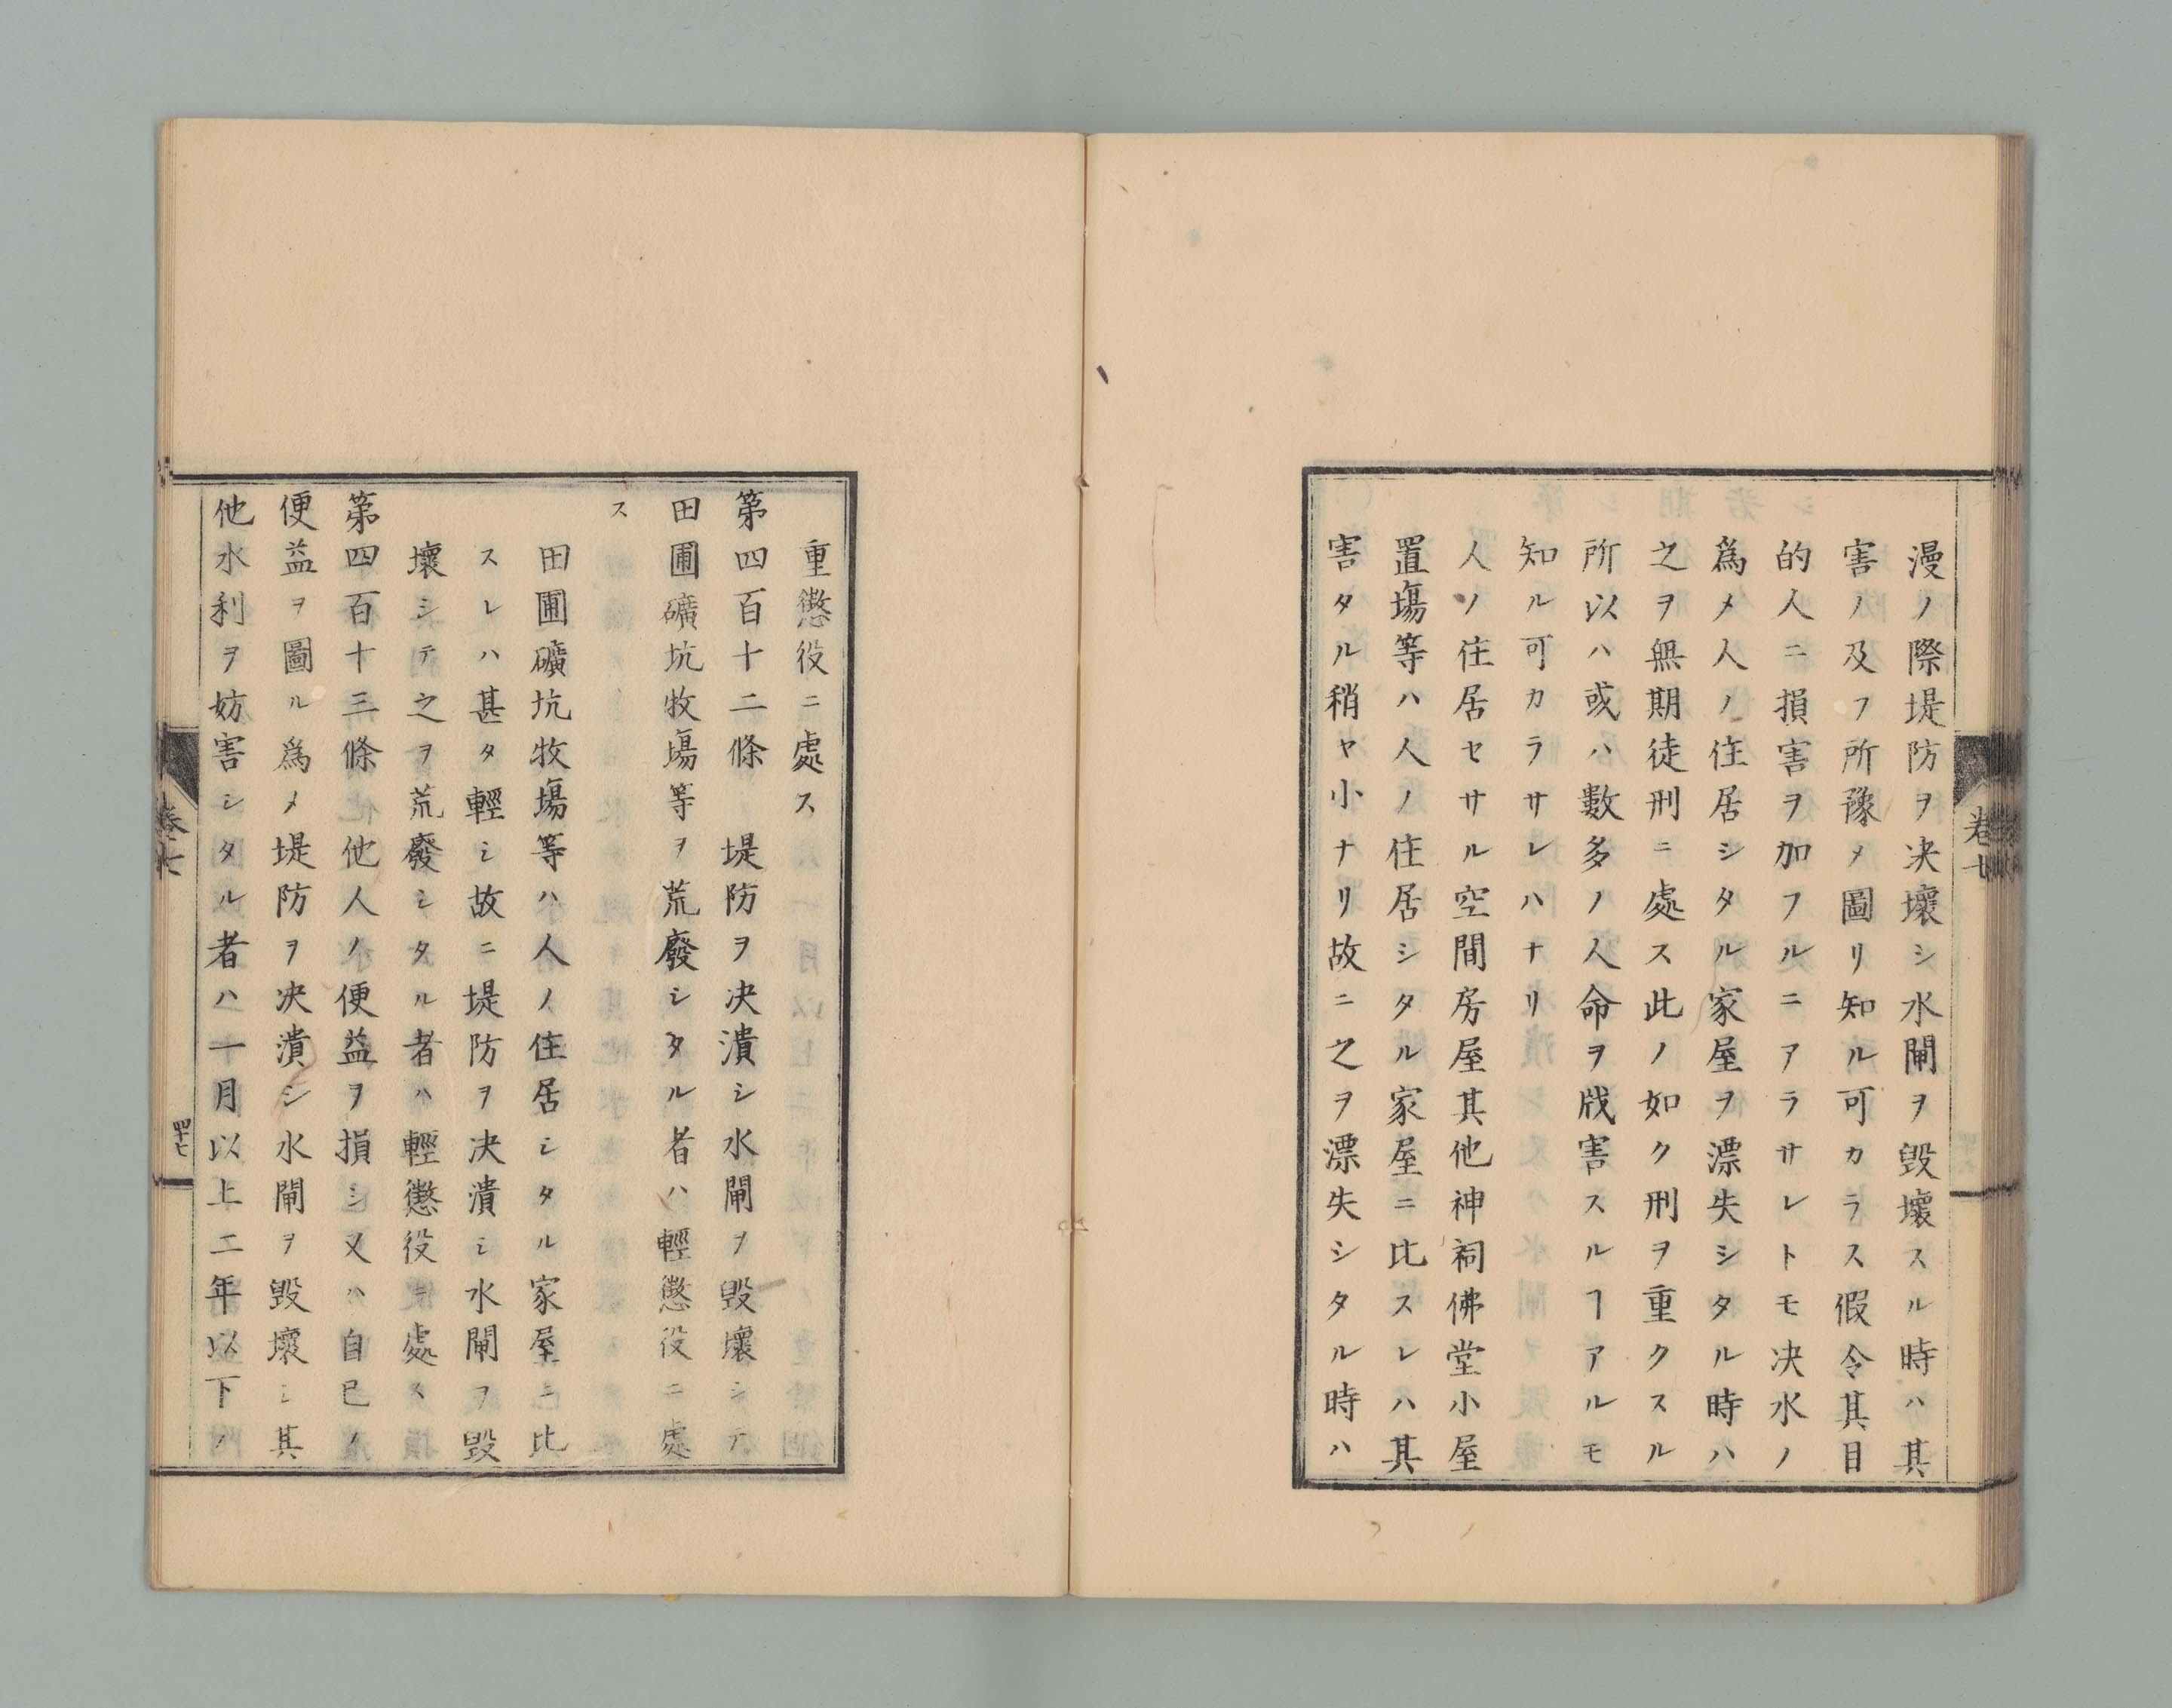 漫ノ際堤防ヲ决壞シ水閘ヲ毀壞スル時ハ其
害ノ及フ所豫メ圖リ知ル可カラス假令其目
的人ニ損害ヲ加フルニアラサレトモ决水ノ
爲メ人ノ住居シタル家屋ヲ漂失シタル時ハ
之ヲ無期徒刑ニ處ス此ノ如ク刑ヲ重クスル
所以ハ或ハ數多ノ人命ヲ戕害スルヿアルモ
知ル可カラサレハナリ
人ノ住居セサル空間房屋其他神祠佛堂小屋
置塲等ハ人ノ住居シタル家屋ニ比スレハ其
害タル稍ヤ小ナリ故ニ之ヲ漂失シタル時ハ
卷七
重懲役ニ處ス
第四百十二條 堤防ヲ决潰シ水閘ヲ毀壞シテ
田圃礦坑牧塲等ヲ荒廢シタル者ハ輕懲役ニ處
ス
田圃礦坑牧塲等ハ人ノ住居シタル家屋ニ比
スレハ甚タ輕シ故ニ堤防ヲ决潰シ水閘ヲ毀
壞シテ之ヲ荒廢シタル者ハ輕懲役ニ處ス
第四百十三條 他人ノ便益ヲ損シ又ハ自已ノ
便益ヲ圖ル爲メ堤防ヲ决潰シ水閘ヲ毀壞シ其
他水利ヲ妨害シタル者ハ一月以上二年以下ノ
卷七
四十七